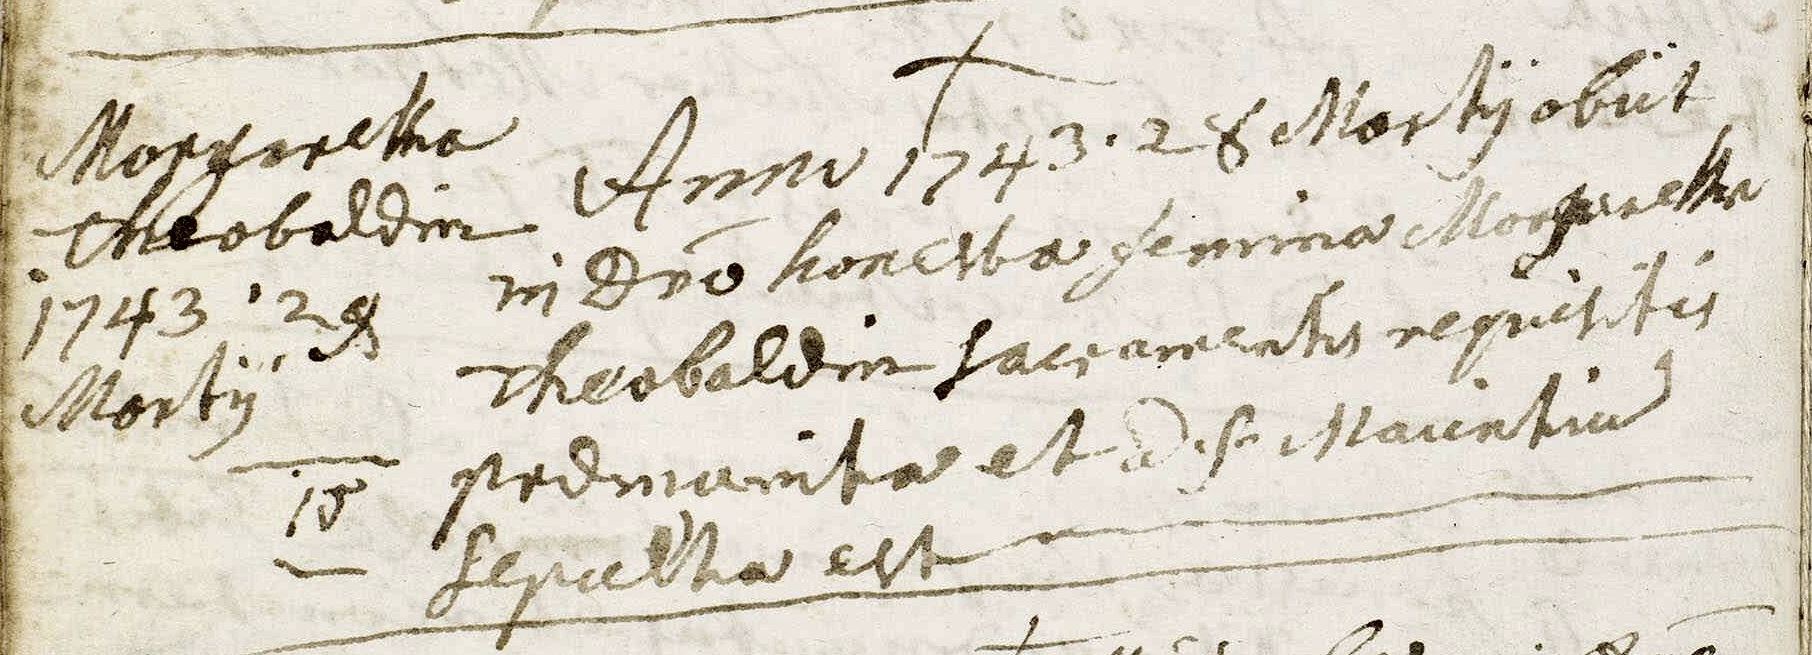 Margaretha
Theobaldin
1743 · 28
Martij
15
Anno 1743 · 28 Martij obijt
in Dnō honesta femina Margaretha
Theobaldin sacramentis requisitis
praemunita et ad S. Mauritiū
sepulta est